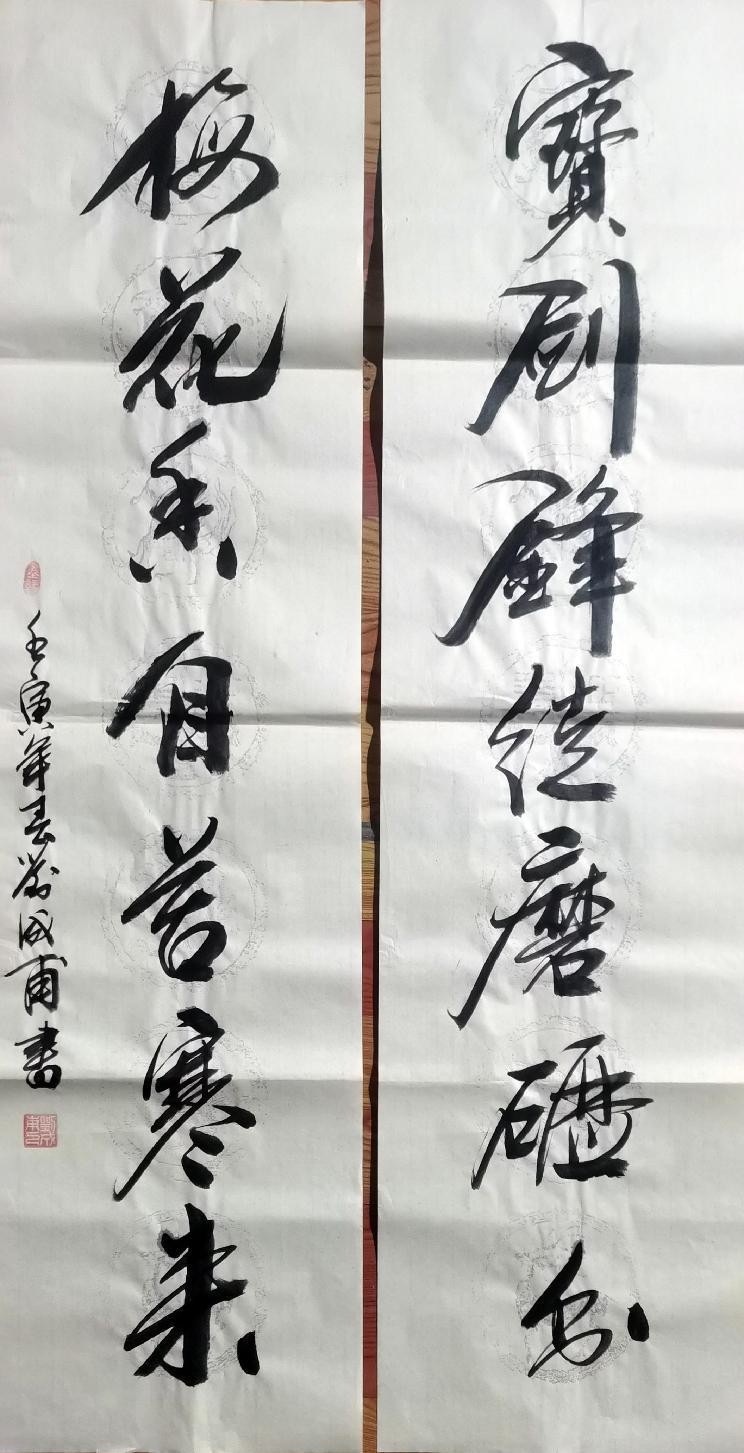 寶劍鋒從磨礪出
梅花香自苦寒来
壬寅年春劉成甫書